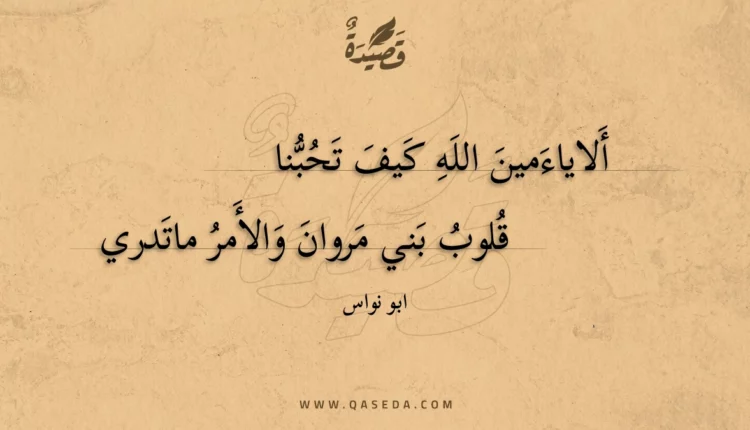 قَصِيْدَةٌ
أَلاياءَمينَ اللَهِ كَيفَ تَحُبُّنا
قُلوبُ بَني مَروانَ وَالأَمرُ ماتَدري
ابو نواس
WWW.QASEDA.COM